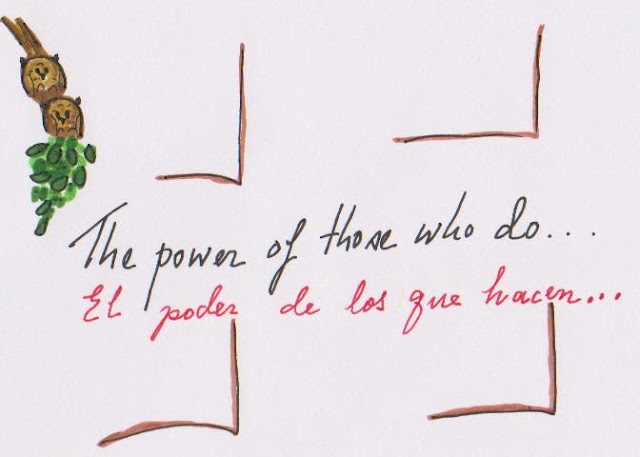 The power of those who do...
El poder de los que hacen...